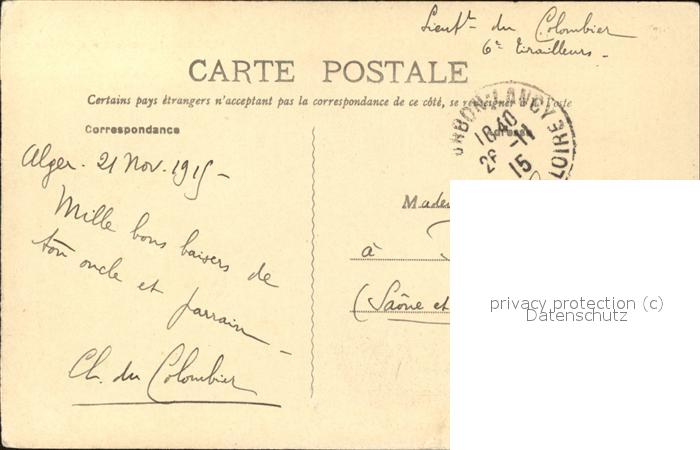 Lieut- du Colombier
6e Tirailleurs -
CARTE POSTALE
Certains pays étrangers n'acceptant pas la correspondance de ce côté, se renseigner à la Poste
Correspondance
Adresse
BOURBON-LANCY
LOIRE
18 40
26 -11
15
Alger - 21 Nov. 1915 -
Mille bons baisers de
ton oncle et parrain -
Ch. du Colombier
Made
à
(Saône et
privacy protection (c)
Datenschutz